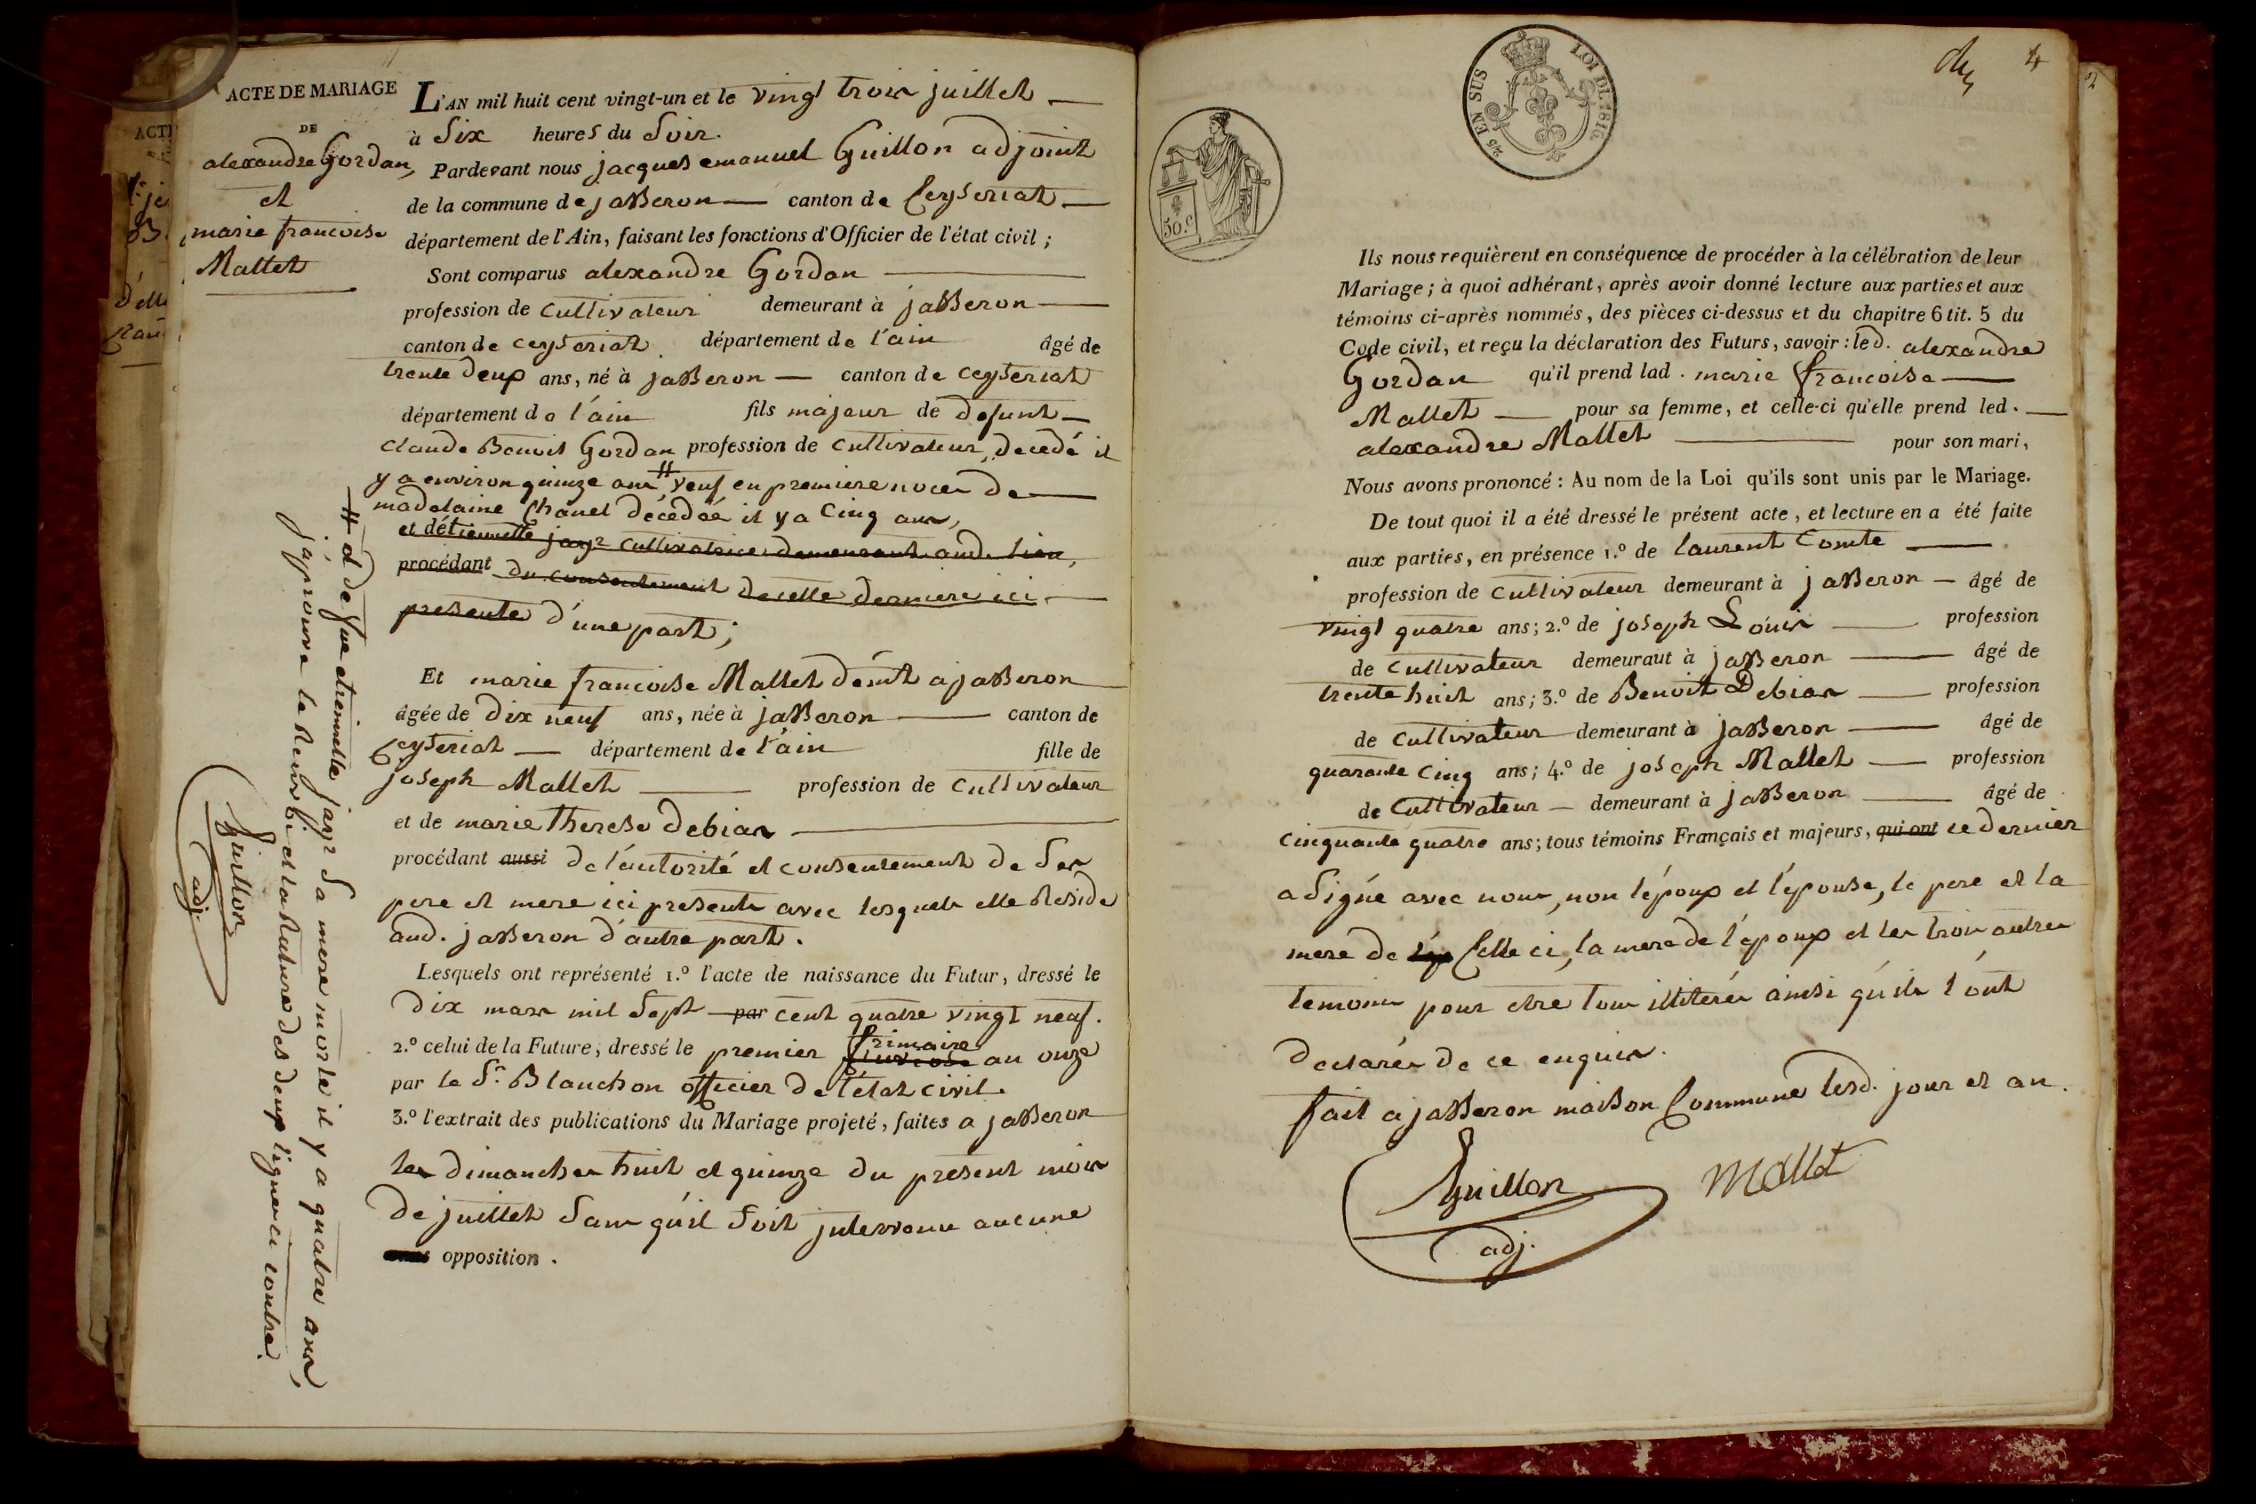 ACTE DE MARIAGE
DE
alexandre Gordan,
et
marie francoise
Mallet
L'AN mil huit cent vingt-un et le vingt trois juillet
à Six heures du Soir.
Pardevant nous jacques emanuel Guillon adjoint
de la commune de jasseron canton de Ceyseriat
département de l'Ain, faisant les fonctions d'Officier de l'état civil;
Sont comparus alexandre Gordan
profession de cultivateur demeurant à jasseron
canton de ceyseriat département de l'ain âgé de
trente deux ans, né à jasseron canton de ceyseriat
département de l'ain fils majeur de defunt
claude Benoit Gordan profession de cultivateur, decedé il
y a environ quinze ans # veuf en premiere noces de
madelaine Chanel décédée il y a Cinq ans,
et d'étiennette jayr cultivatrice demeurant aud. lieu,
procédant du consentement de cette derniere ici
presente d'une part;
Et marie francoise Mallet demt a jasseron
âgée de dix neuf ans, née à jasseron canton de
Ceyseriat département de l'ain fille de
joseph Mallet profession de cultivateur
et de marie therese debias
procédant aussi de l'autorité et consentement de Ses
pere et mere ici presents avec lesquels elle Reside
aud. jasseron d'autre part.
Lesquels ont représenté 1.º l'acte de naissance du Futur, dressé le
dix mars mil Sept par cent quatre vingt neuf.
2.º celui de la Future, dressé le premier frimaire an onze
par le Sr. Blanchon officier de l'état civil.
3.º l'extrait des publications du Mariage projeté, faites a jasseron
les dimanches huit et quinze du present mois
de juillet Sans qu'il Soit intervenu aucune
opposition.
# et de fue etiennette jayr Sa mere morte il y a quatre ans,
j'aprouve le Renvoi et la Rature des deux lignes ci contre.
Guillon
adj.
45 EN SUS
LOI DE 1816
50.c
4
2
Ils nous requièrent en conséquence de procéder à la célébration de leur
Mariage; à quoi adhérant, après avoir donné lecture aux parties et aux
témoins ci-après nommés, des pièces ci-dessus et du chapitre 6 tit. 5 du
Code civil, et reçu la déclaration des Futurs, savoir: led. alexandre
Gordan qu'il prend lad. marie francoise
Mallet pour sa femme, et celle-ci qu'elle prend led.
alexandre Mallet pour son mari,
Nous avons prononcé: Au nom de la Loi qu'ils sont unis par le Mariage.
De tout quoi il a été dressé le présent acte, et lecture en a été faite
aux parties, en présence 1.º de laurent Comte
profession de cultivateur demeurant à jasseron âgé de
vingt quatre ans; 2.º de joseph Louis profession
de cultivateur demeurant à jasseron âgé de
trente huit ans; 3.º de Benoit Debias profession
de cultivateur demeurant à jasseron âgé de
quarante cinq ans; 4.º de joseph Mallet profession
de Cultivateur demeurant à jasseron âgé de
cinquante quatre ans; tous témoins Français et majeurs, qui ont ce dernier
a Signé avec nous, non l'époux et l'épouse, le pere et la
mere de Celle ci, la mere de l'époux et les trois autres
temoins pour etre tous illiterés ainsi qu'ils l'ont
declarés de ce enquis.
fait a jasseron maison Commune lesd. jour et an.
Guillon
adj.
Mallet